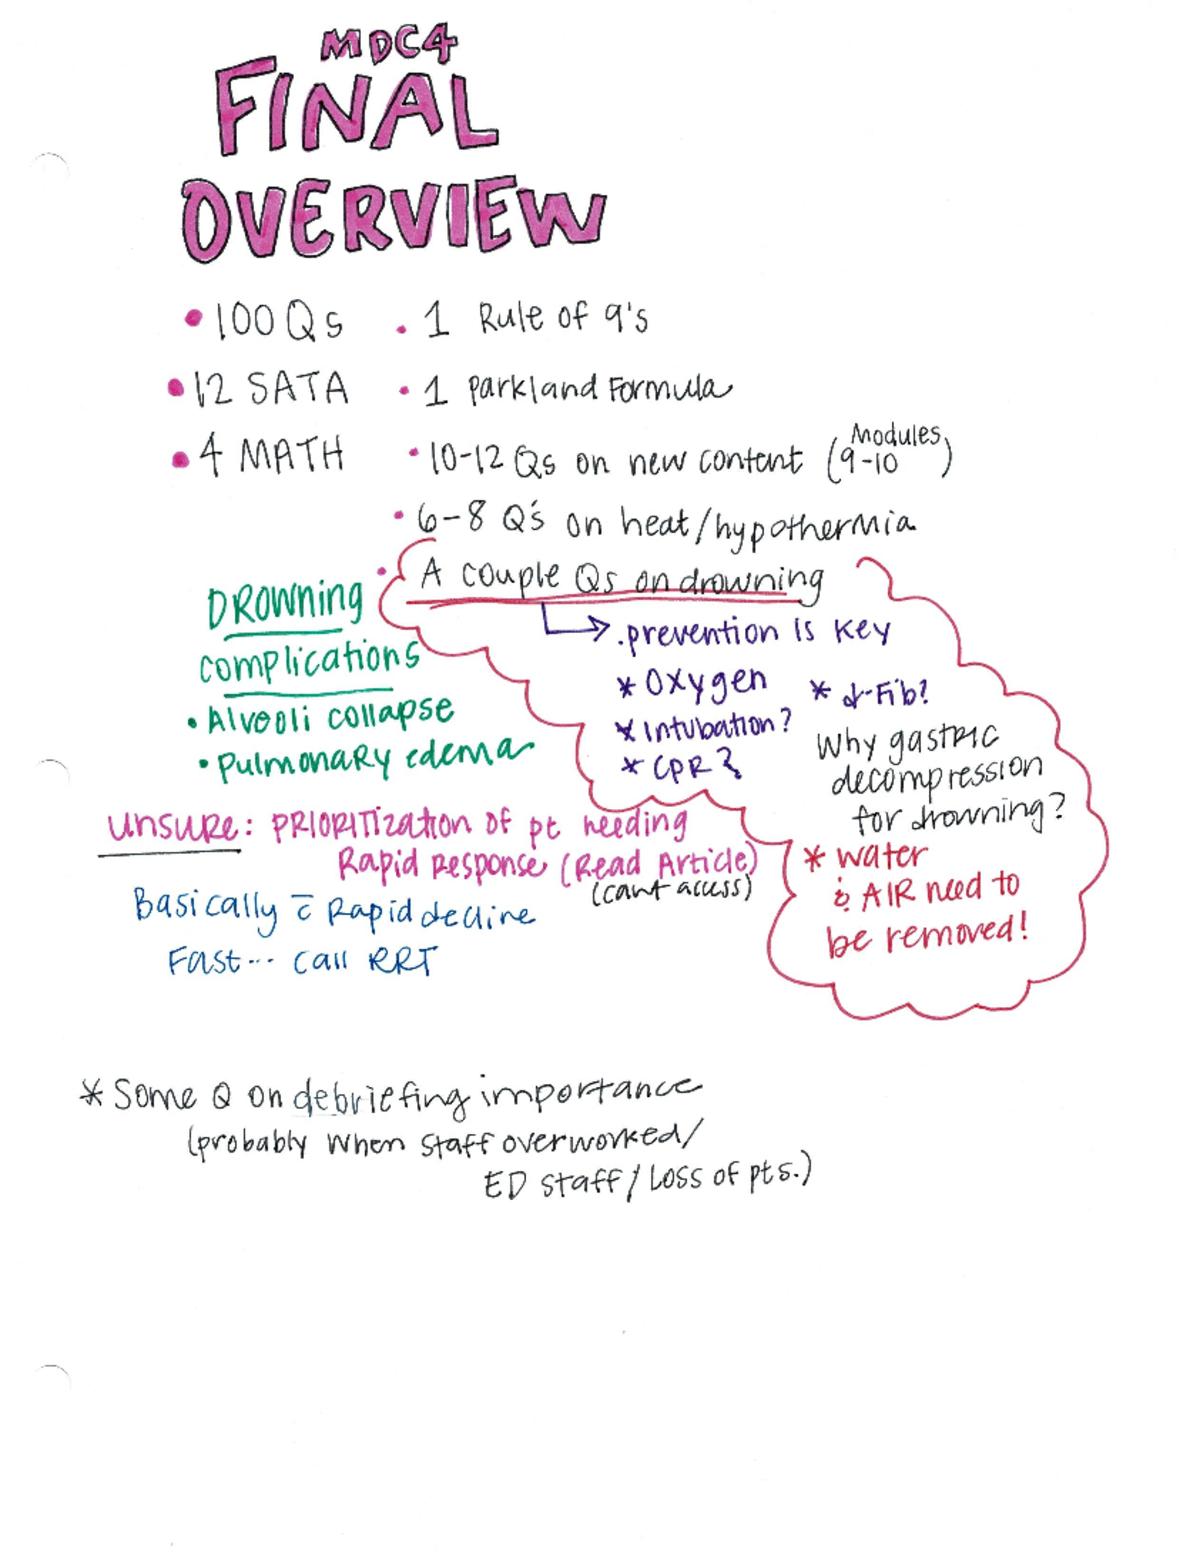 MDC4
FINAL
OVERVIEW
• 100 Qs
• 12 SATA
• 4 MATH
• 1 Rule of 9's
• 1 Parkland Formula
• 10-12 Qs on new content (Modules 9-10)
• 6-8 Q's on heat/hypothermia
• A couple Qs on drowning
→ .prevention is key
* Oxygen
* Intubation?
* CPR?
* d-Fib?
Why gastric
decompression
for drowning?
* Water
& AIR need to
be removed!
DROWNING
complications
• Alveoli collapse
• Pulmonary edema
UNSURE: PRIORITIZATION OF pt needing
Rapid Response (Read Article)
(cant access)
Basically c̄ Rapid decline
Fast... call RRT
* Some Q on debriefing importance
(probably when staff overworked/
ED staff/Loss of pts.)